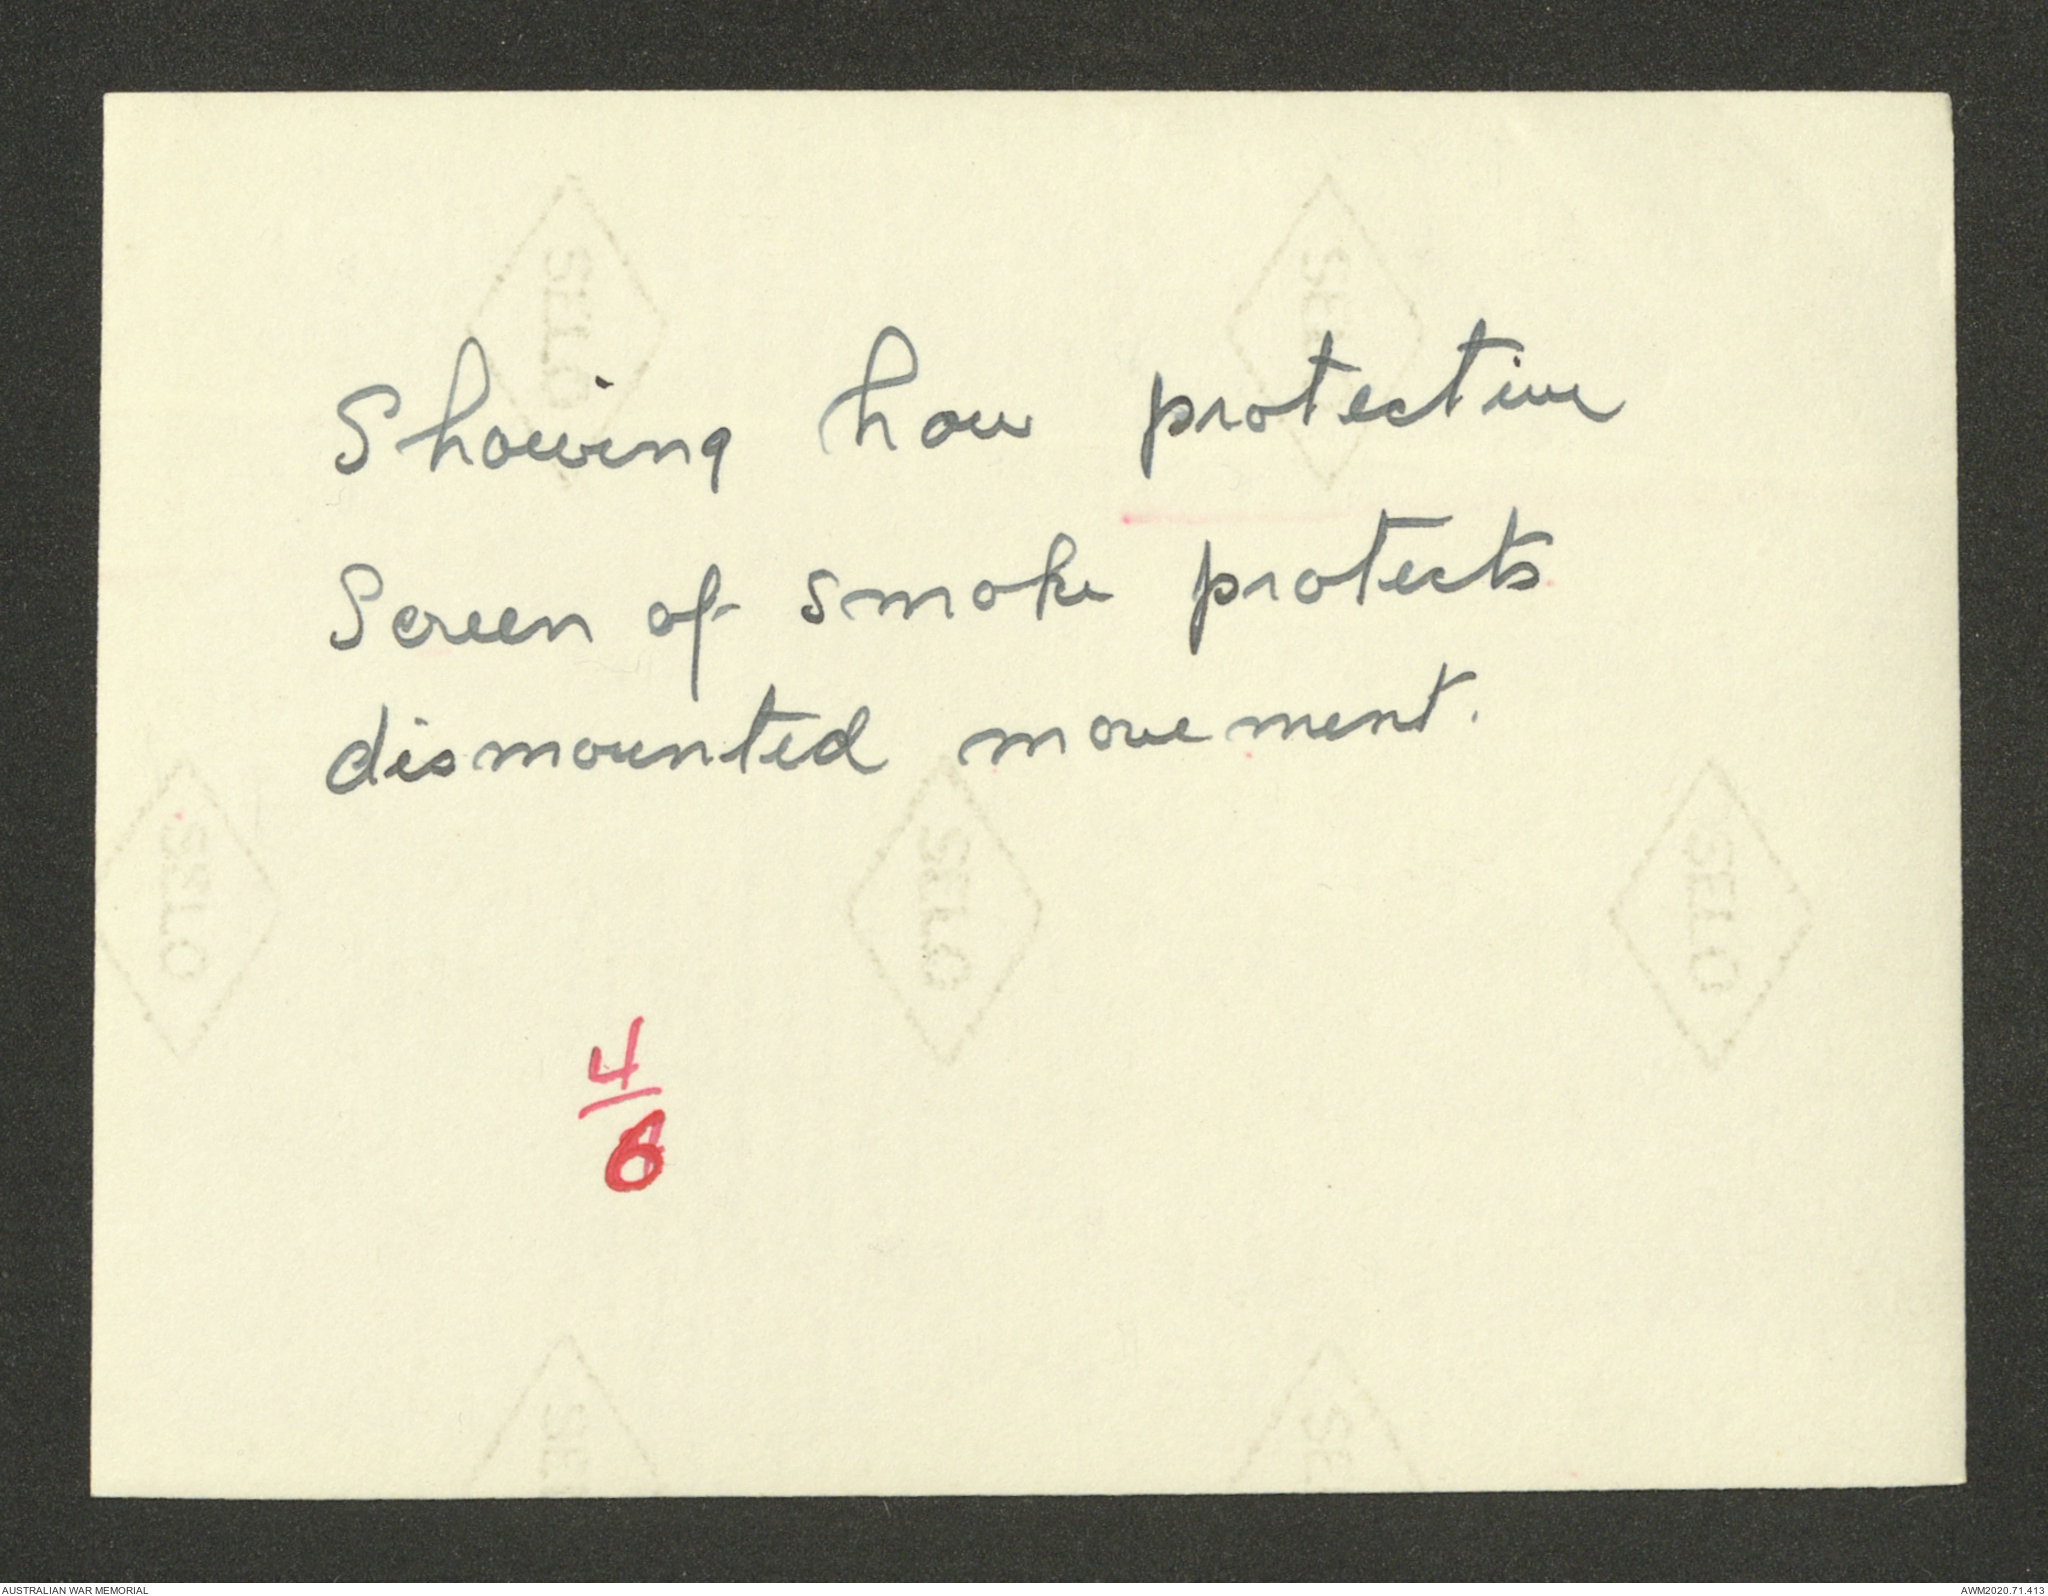 SELO SELO
Showing how protective
Screen of smoke protects
dismounted movement.
SELO SELO SELO
4
6
SE SE
AUSTRALIAN WAR MEMORIAL
AWM2020.71.413